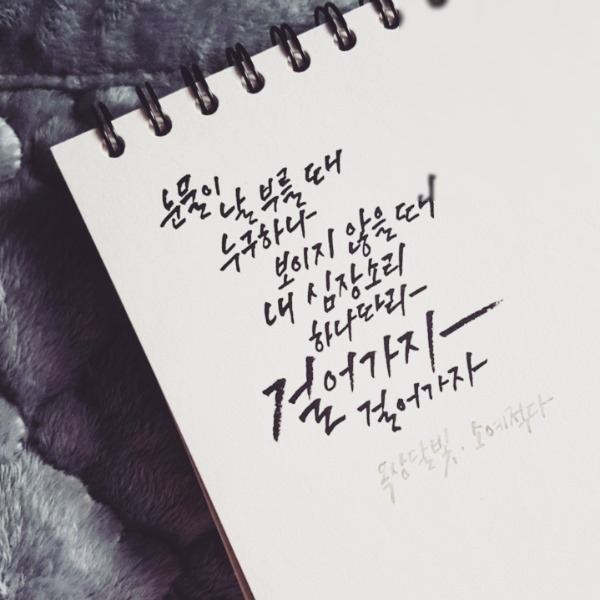 눈물이 날 부를 때
누구 하나
보이지 않을 때
내 심장소리
하나 따라
걸어가지
걸어가자
옥상달빛. 소예적다